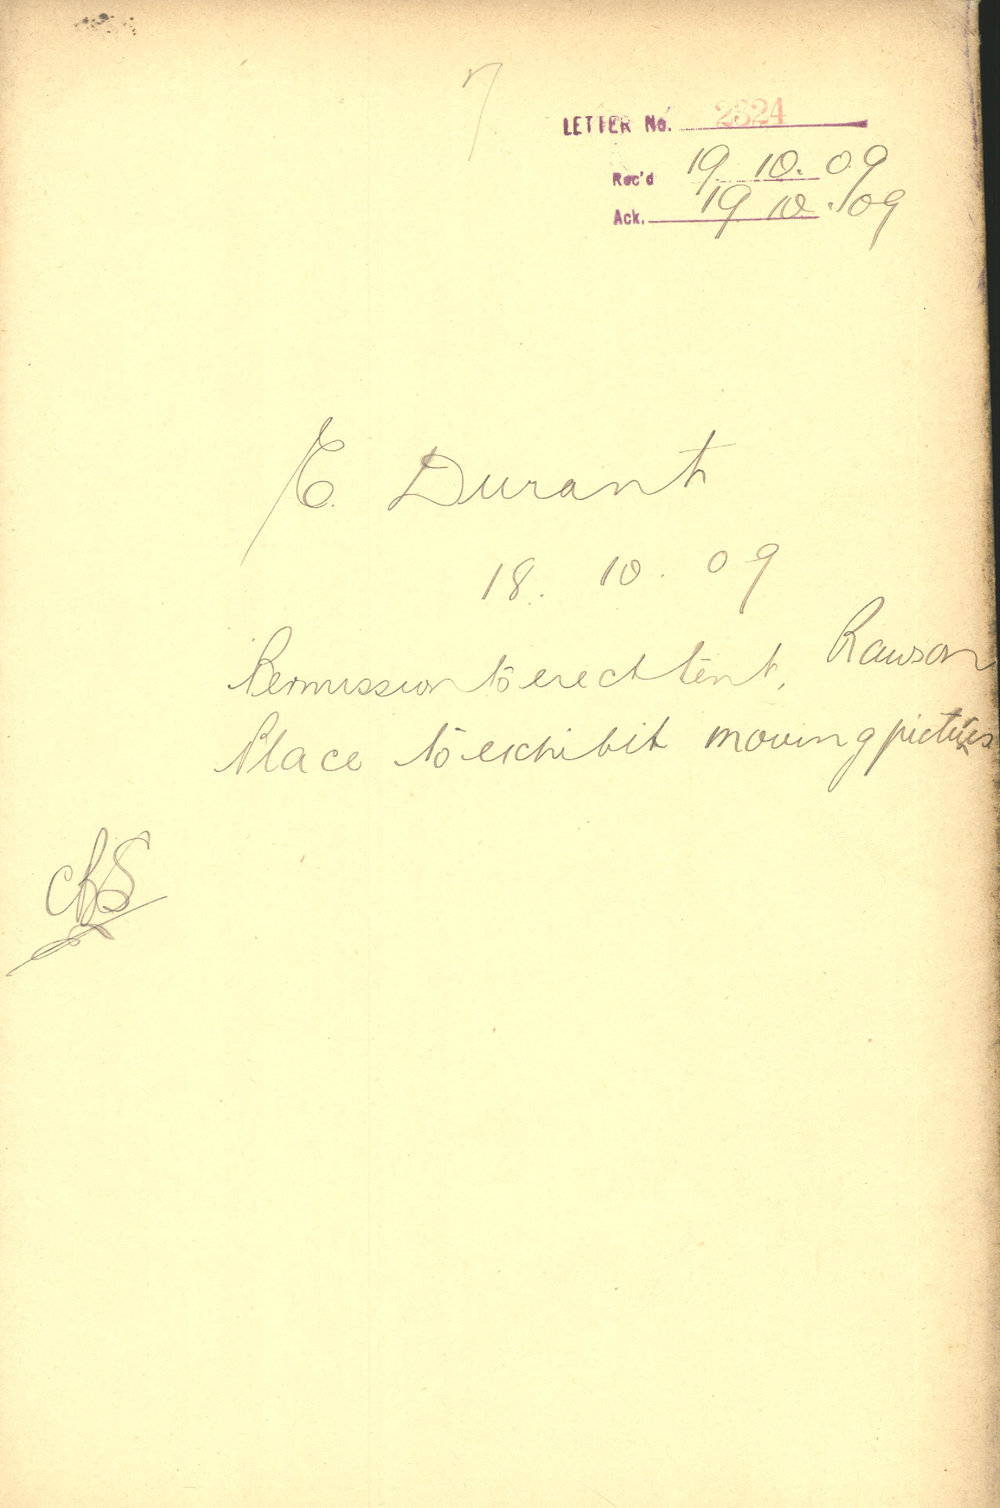 7
LETTER No. 2824
Rec'd 19. 10. 09
Ack. 19 10. /09
E. Durant
18. 10. 09
Permission to erect tent, Rawson
Place to exhibit moving pictures